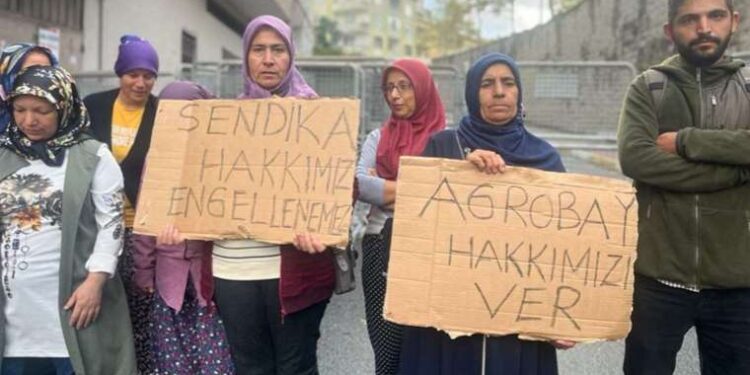 SENDIKA
HAKKIMIZ
ENGELLENEMEZ
AGROBAY
HAKKIMIZI
VER